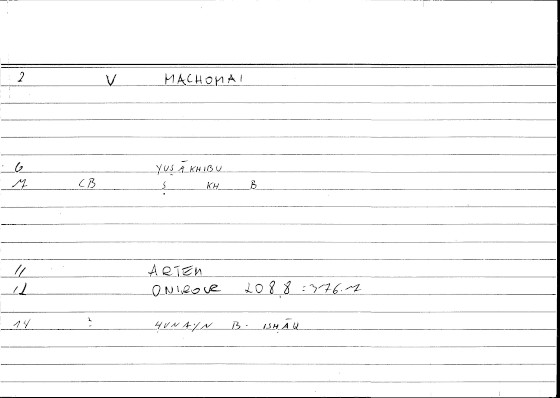 2 V MACHOMAI
6 YUṢĀKHIBU
M CB Ṣ KH B
11 ARTEM
12 ONIROCR 208,8 :376.1
14 ? ḤUNAYN B. ISḤĀQ